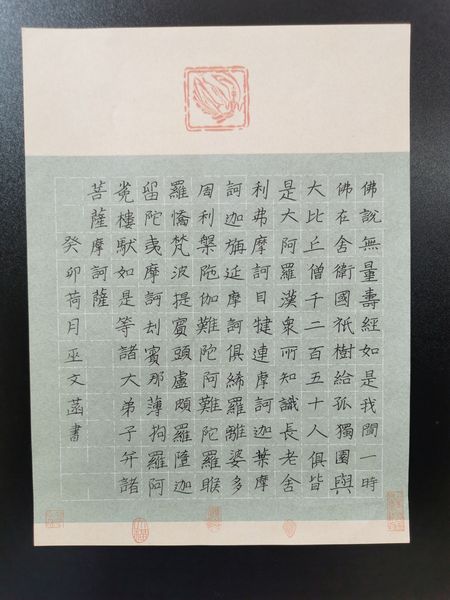 佛說無量壽經如是我聞一時
佛在舍衛國祇樹給孤獨園與
大比丘僧千二百五十人俱皆
是大阿羅漢衆所知識長老舍
利弗摩訶目犍連摩訶迦葉摩
訶迦旃延摩訶俱絺羅離婆多
周利槃陁伽難陀阿難陀羅睺
羅憍梵波提賓頭盧頗羅墮迦
留陀夷摩訶劫賓那薄拘羅阿
㝹樓馱如是等諸大弟子并諸
菩薩摩訶薩
癸卯荷月巫文菡書